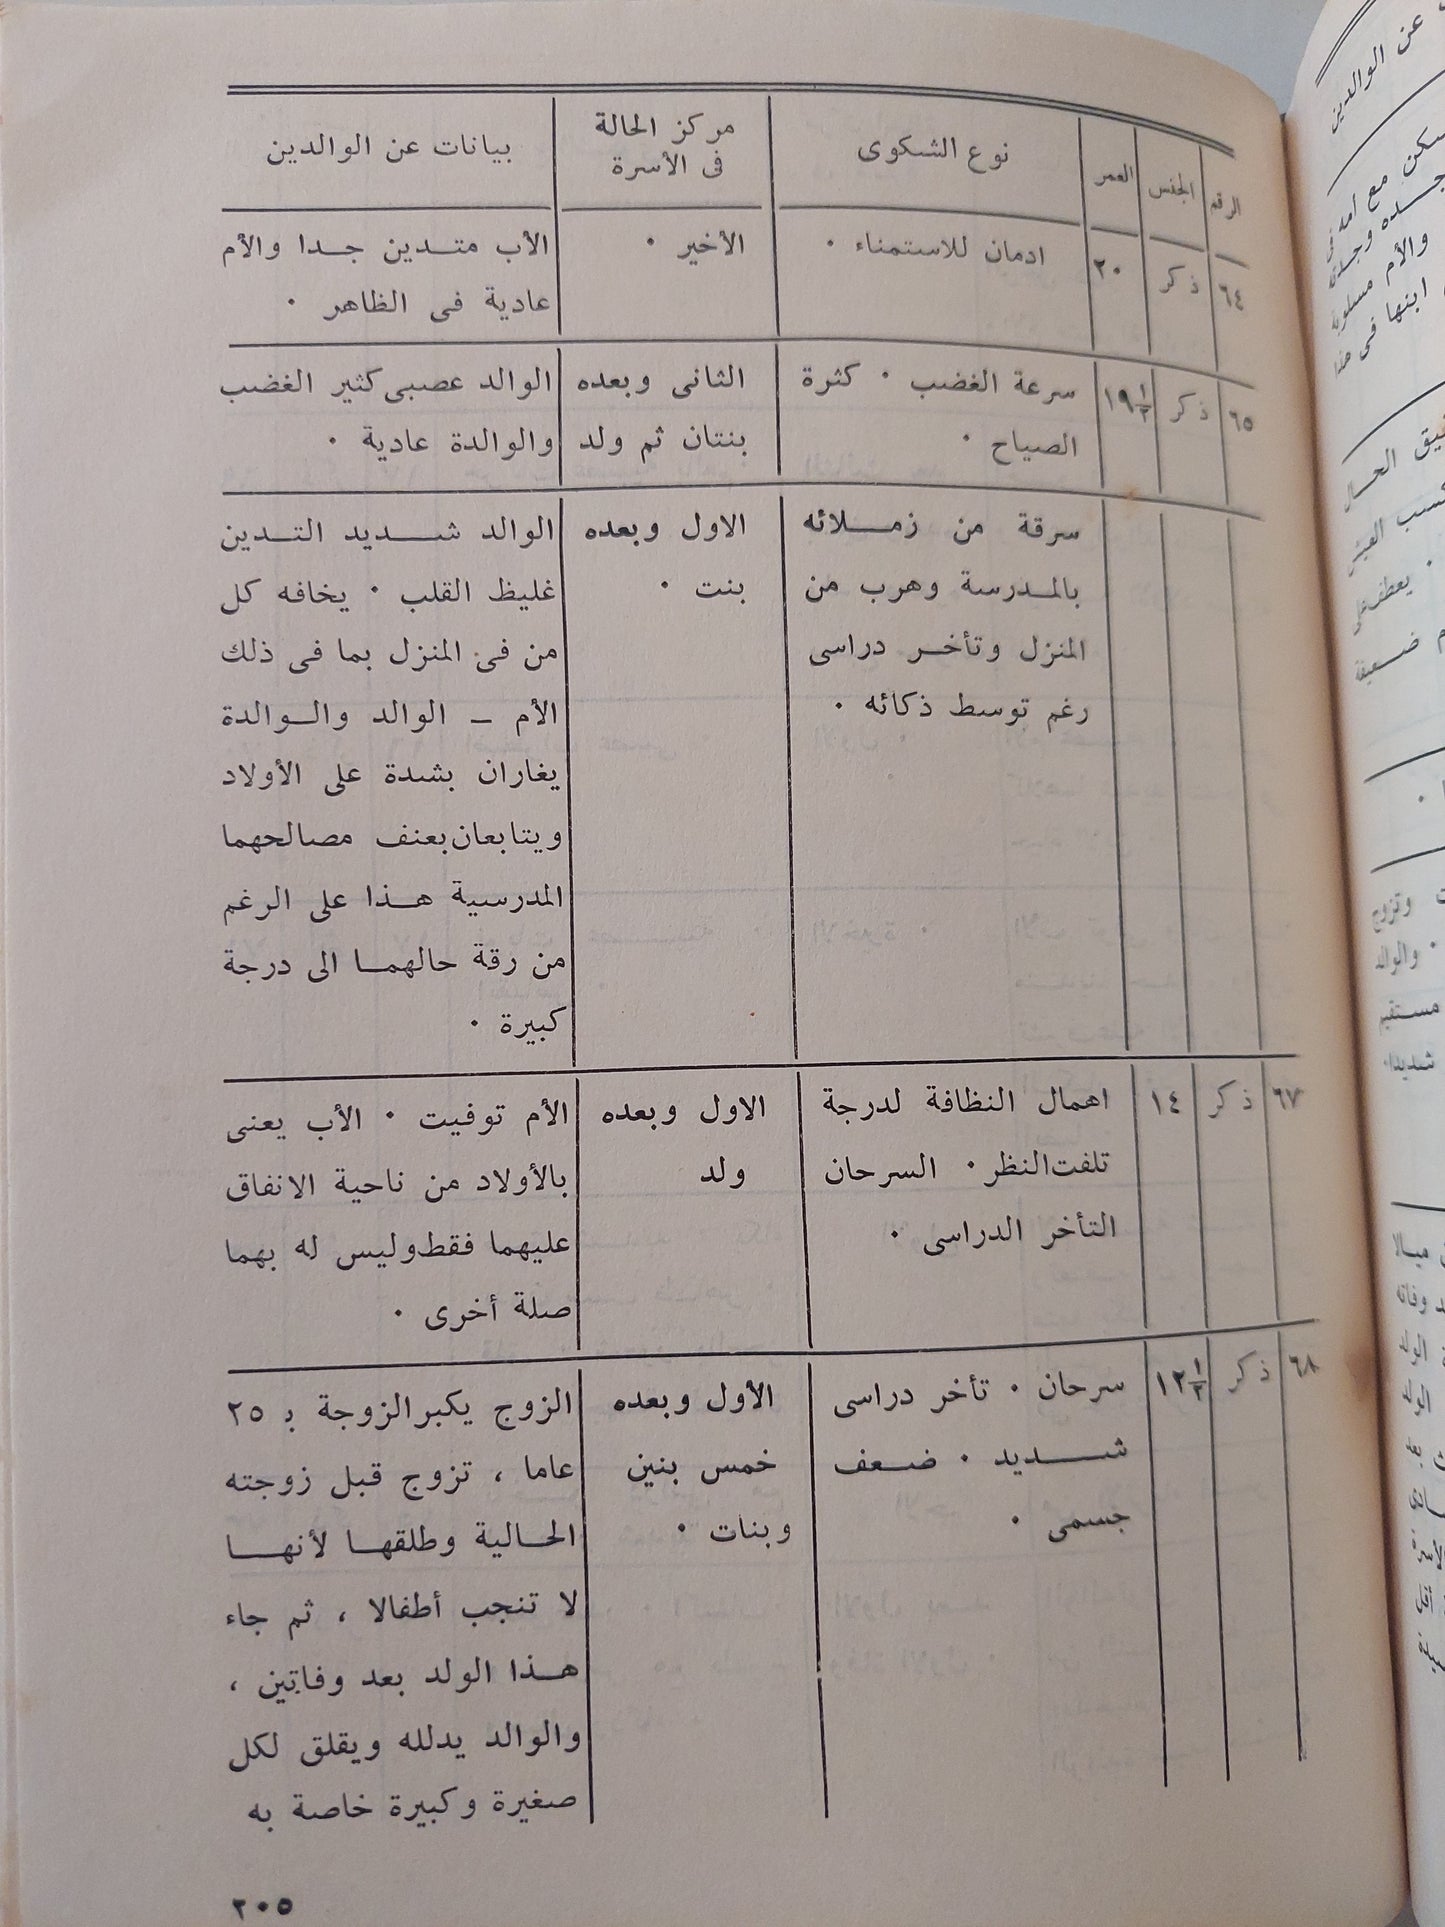 الرقم
الجنس
العمر
نوع الشكوى
مركز الحالة
فى الأسرة
بيانات عن الوالدين
٦٤
ذكر
٢٠
ادمان للاستمناء ٠
الأخير ٠
الأب متدين جدا والأم
عادية فى الظاهر ٠
٦٥
ذكر
١٩ ١/٢
سرعة الغضب ٠ كثرة
الصياح ٠
الثانى وبعده
بنتان ثم ولد
الوالد عصبى كثير الغضب
والوالدة عادية ٠
سرقة من زملائه
بالمدرسة وهرب من
المنزل وتأخر دراسى
رغم توسط ذكائه ٠
الاول وبعده
بنت ٠
الوالد شديد التدين
غليظ القلب ٠ يخافه كل
من فى المنزل بما فى ذلك
الأم – الوالد والوالدة
يغاران بشدة على الأولاد
ويتابعان بعنف مصالحهما
المدرسية هذا على الرغم
من رقة حالهما الى درجة
كبيرة ٠
٦٧
ذكر
١٤
اهمال النظافة لدرجة
تلفت النظر ٠ السرحان
التأخر الدراسى ٠
الاول وبعده
ولد
الأم توفيت ٠ الأب يعنى
بالأولاد من ناحية الانفاق
عليهما فقط وليس له بهما
صلة أخرى ٠
٦٨
ذكر
١٢ ١/٢
سرحان ٠ تأخر دراسى
شديد ٠ ضعف
جسمى ٠
الأول وبعده
خمس بنين
وبنات ٠
الزوج يكبر الزوجة بـ ٢٥
عاما ، تزوج قبل زوجته
الحالية وطلقها لأنها
لا تنجب أطفالا ، ثم جاء
هذا الولد بعد وفاتين ،
والوالد يدلله ويقلق لكل
صغيرة وكبيرة خاصة به
٢٠٥
عن الوالدين
سكن مع امه فى
جده وجدته
والأم مسلوبة
ابنها فى هذا
الحال
كسب العيش
٠ يعطف على
ضعيفة
وتزوج
٠ والوالد
مستقيم
شديدا ٠
ميالا
وفاته
الولد
الولد
بعد
أقل